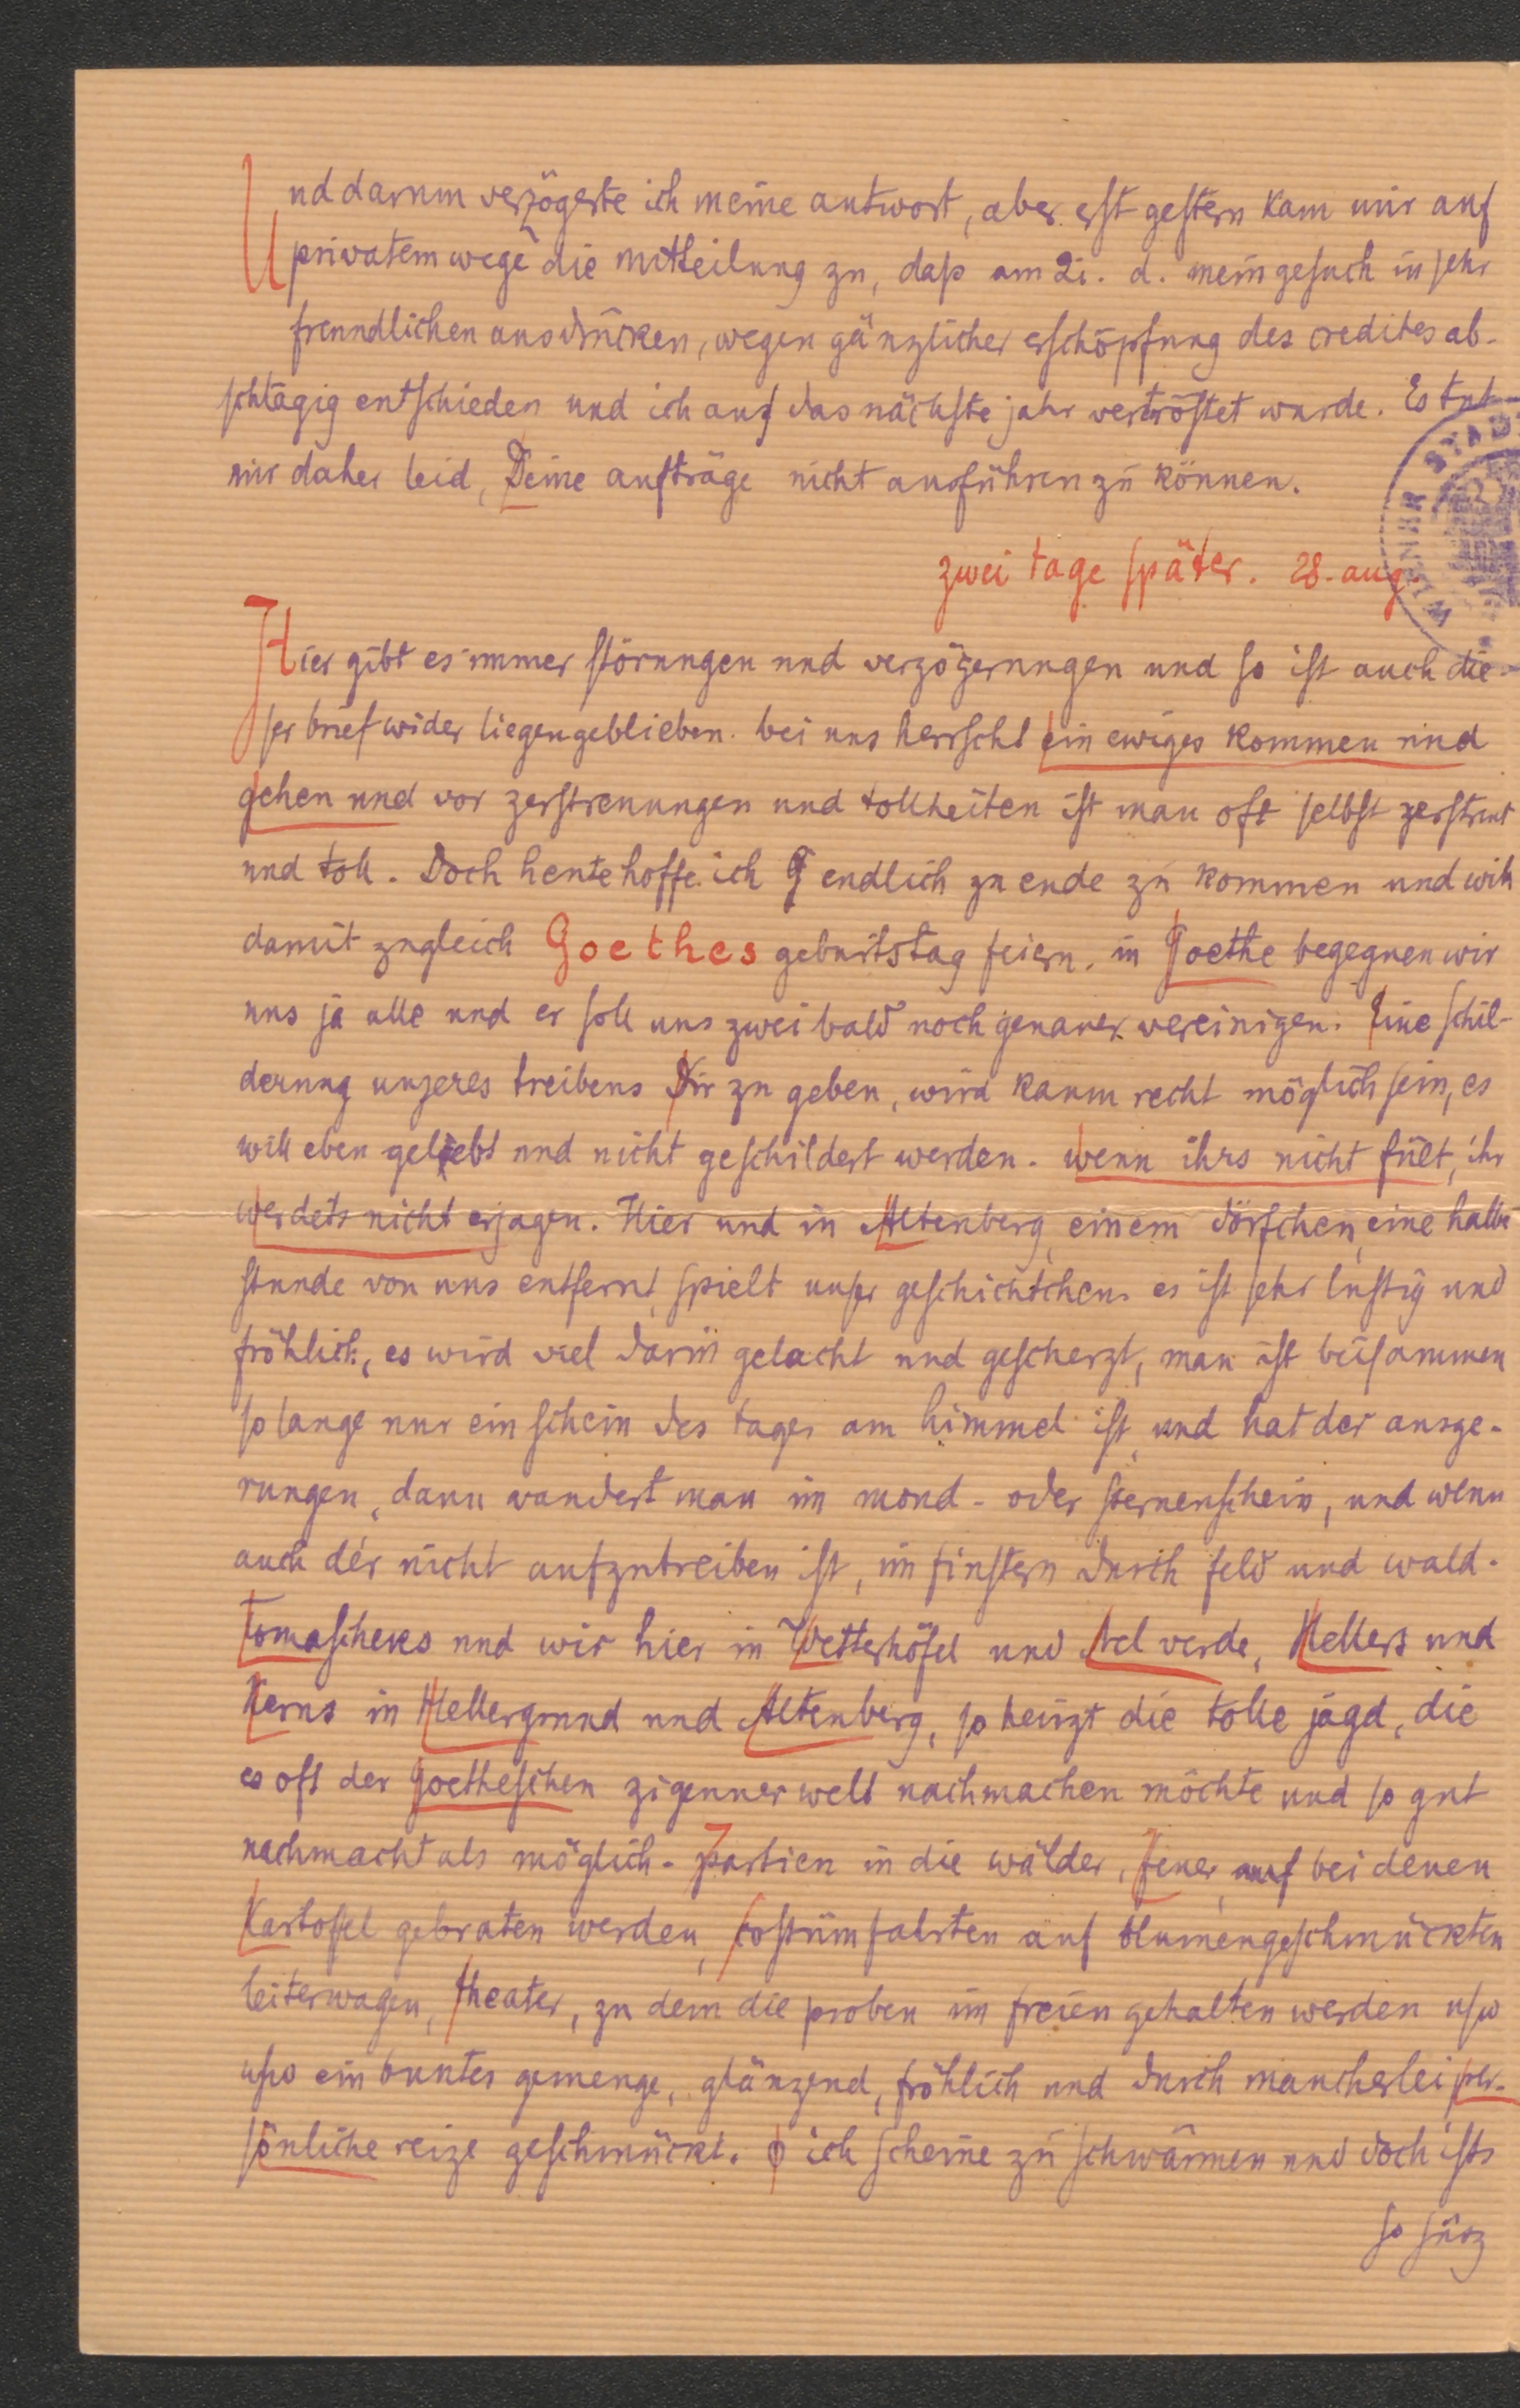 Und darum verzögerte ich meine antwort, aber erst gestern kam mir auf
privatem wege die mitteilung zu, daß am 21. d. mein gesuch in sehr
freundlichen ausdrücken, wegen gänzlicher erschöpfung des credites ab-
schlägig entschieden und ich auf das nächste jahr vertröstet wurde. Es tut
mir daher leid, Deine aufträge nicht ausführen zu können.
zwei tage später. 28. aug.
WIENER STAD
Hier gibt es immer störungen und verzögerungen und so ist auch die-
ser brief wider liegengeblieben. bei uns herrscht ein ewiges kommen und
gehen und vor zerstreuungen und tollheiten ist man oft selbst zerstreut
und toll. Doch heute hoffe ich endlich zu ende zu kommen und will
damit zugleich Goethes geburtstag feiern. in Goethe begegnen wir
uns ja alle und er soll uns zwei bald noch genauer vereinigen. Eine schil-
derung unseres treibens Dir zu geben, wird kaum recht möglich sein, es
will eben gelebt und nicht geschildert werden. wenn ihrs nicht fült, ihr
werdets nicht erjagen. Hier und in Altenberg, einem dörfchen, eine halbe
stunde von uns entfernt, spielt unser geschichtchen. es ist sehr lustig und
fröhlich, es wird viel darin gelacht und gescherzt, man ist beisammen
so lange nur ein schein des tages am himmel ist, und hat der ausge-
rungen, dann wandert man im mond- oder sternenschein, und wenn
auch dér nicht aufzutreiben ist, im finstern durch feld und wald.
Tomascheks und wir hier in Wetterhöfel und Vel verde, Hellers und
Kerns in Hellergrund und Altenberg, so heiszt die tolle jagd, die
es oft der Goetheschen zigeunerwelt nachmachen möchte und so gut
nachmacht als möglich. Partien in die wälder, Feuer, auf bei denen
Kartofel gebraten werden, costümfahrten auf blumengeschmückten
leiterwagen, theater, zu dem die proben im freien gehalten werden usw
usw ein buntes gemenge, glänzend, fröhlich und durch mancherlei per-
sönliche reize geschmückt. ich scheine zu schwärmen und doch ists
so süsz